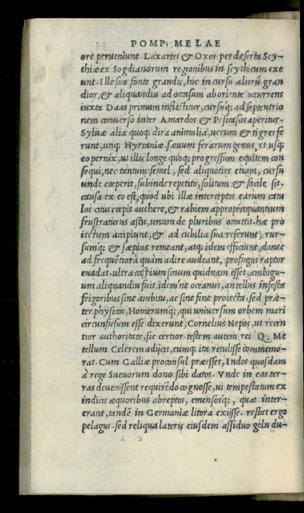 POMP. MELAE
ore perueniunt. Iaxartes & Oxos per deserta Scy-
thiæ ex Sogdianorum regionibus in scythicum exe
unt. Ille suo fonte grandis, hic in cursu aliorũ gran
dior, & aliquandiu ad occasum ab oriente occurrens
iuxta Daas primum inflectitur, cursuq; ad septentrio
nem conuerso inter Amardos & Pesicas os aperitur.
Syluæ alia quoq; dira animalia, uerum & tigres fe
runt, utiq; Hyrcaniæ, sæuum ferarum genus, et usq;
eo pernix, ut illis longe quoq; progressum equitem con
sequi, nec tantum semel, sed aliquoties etiam, cursu
unde cœperit, subinde repetito, solitum & facile sit.
causa ex eo est, quod ubi ille interceptos earum catu
los citus cœpit auehere, & rabiem appropinquantium
frustraturus astu, unum de pluribus omittit. hæ pro
iectum accipiunt, & ad cubilia sua referunt, rur-
sumq; & sæpius remeant, atq; idem efficiunt, donec
ad frequẽtiora quàm adire audeant, profugus raptor
euadat. ultra caspium sinum quidnam esset, ambigu-
um aliquandiu fuit. idem ne oceanus, an tellus infesta
frigoribus sine ambitu, ac sine fine proiecta. sed præ-
ter physicos, Homerumq;, qui uniuersum orbem mari
circunfusum esse dixerunt, Cornelius Nepos, ut recen
tior authoritate, sic certior. testem autem rei Q. Me
tellum Celerem adijcit, eumq; ita retulisse commemo-
rat. Cum Galliæ proconsul præesset, Indos quosdam
à rege Sueuorum dono sibi datos. Vnde in eas ter-
ras deuenissent requirẽdo cognosse, ui tempestatum ex
indicis æquoribus abreptos, emensosq;, quæ inter-
erant, tandẽ in Germaniæ litora exisse. restat ergo
pelagus. sed reliqua lateris eiusdem assiduo gelu du-